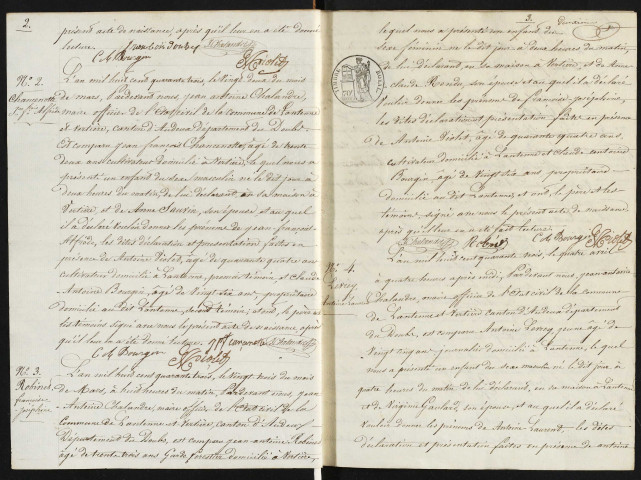 2.
présent acte de naissance, après qu'il leur en a été donné
lecture.
C A Bourgin
Nº 2.
L'an mil huit cent quarante trois, le vingt deux du mois
de mars, Pardevant nous, jean antoine Chalandre,
maire officier de l'État civil de la commune de Lantenne
et Vertière, canton d'Audeux département du Doubs
Est comparu jean françois âgé de trente
deux ans cultivateur domicilié à Vertière, lequel nous a
présenté un enfant du sexe masculin né le dit jour à
deux heures du matin, de lui déclarant, en sa maison à
Vertière, et de Anne son épouse et auquel
il a déclaré vouloir donner les prénoms de jean françois
Alfred, les dites déclaration et présentation faites en
présence de Antoine Violet, âgé de quarante quatre ans,
cultivateur domicilié à Lantenne, premier témoin, et claude
Antoine Bourgin, âgé de vingt six ans, propriétaire
domicilié au dit Lantenne, second témoin; et ont, le père et
les témoins signé avec nous le présent acte de naissance, après
qu'il leur en a été donné lecture.
C A Bourgin
Nº 3.
Robinet
françoise
joséphine
L'an mil huit cent quarante trois, le vingt trois du mois
de Mars, à huit heures du matin, Pardevant nous, jean
Antoine Chalandre, maire officier de l'État civil de la
Commune de Lantenne et Vertière, canton d'Audeux
Département du Doubs, est comparu jean antoine Robinet
âgé de trente trois ans Garde forestier domicilié à Vertière,
3.
lequel nous a présenté un enfant du
sexe féminin né le dit jour à deux heures du matin,
de lui déclarant, en sa maison à Vertière, et de Anne
claude son épouse et auquel il a déclaré
vouloir donner les prénoms de françoise joséphine,
les dites déclaration et présentation faites en présence
de Antoine Violet, âgé de quarante quatre ans,
cultivateur domicilié à Lantenne et claude antoine
Bourgin, âgé de vingt six ans propriétaire
domicilié au dit Lantenne, et ont, le père et les
témoins signé avec nous le présent acte de naissance
après qu'il leur en a été fait lecture.
Robinet C A Bourgin
Nº 4.
L'an mil huit cent quarante trois, le quatre avril
à quatre heures après midi; Pardevant nous, jean antoine
Chalandre, maire officier de l'État civil de la commune
de Lantenne et Vertière canton d'Audeux département
du Doubs, est comparu Antoine jeune âgé de
vingt cinq ans domicilié à Lantenne, lequel
nous a présenté un enfant du sexe masculin né le dit jour, à
quatre heures du matin de lui déclarant, en sa maison à Lantenne
et de Virginie son épouse, et auquel il a déclaré
vouloir donner les prénoms de Antoine Laurent, les dites
déclaration et présentation faites en présence de antoine